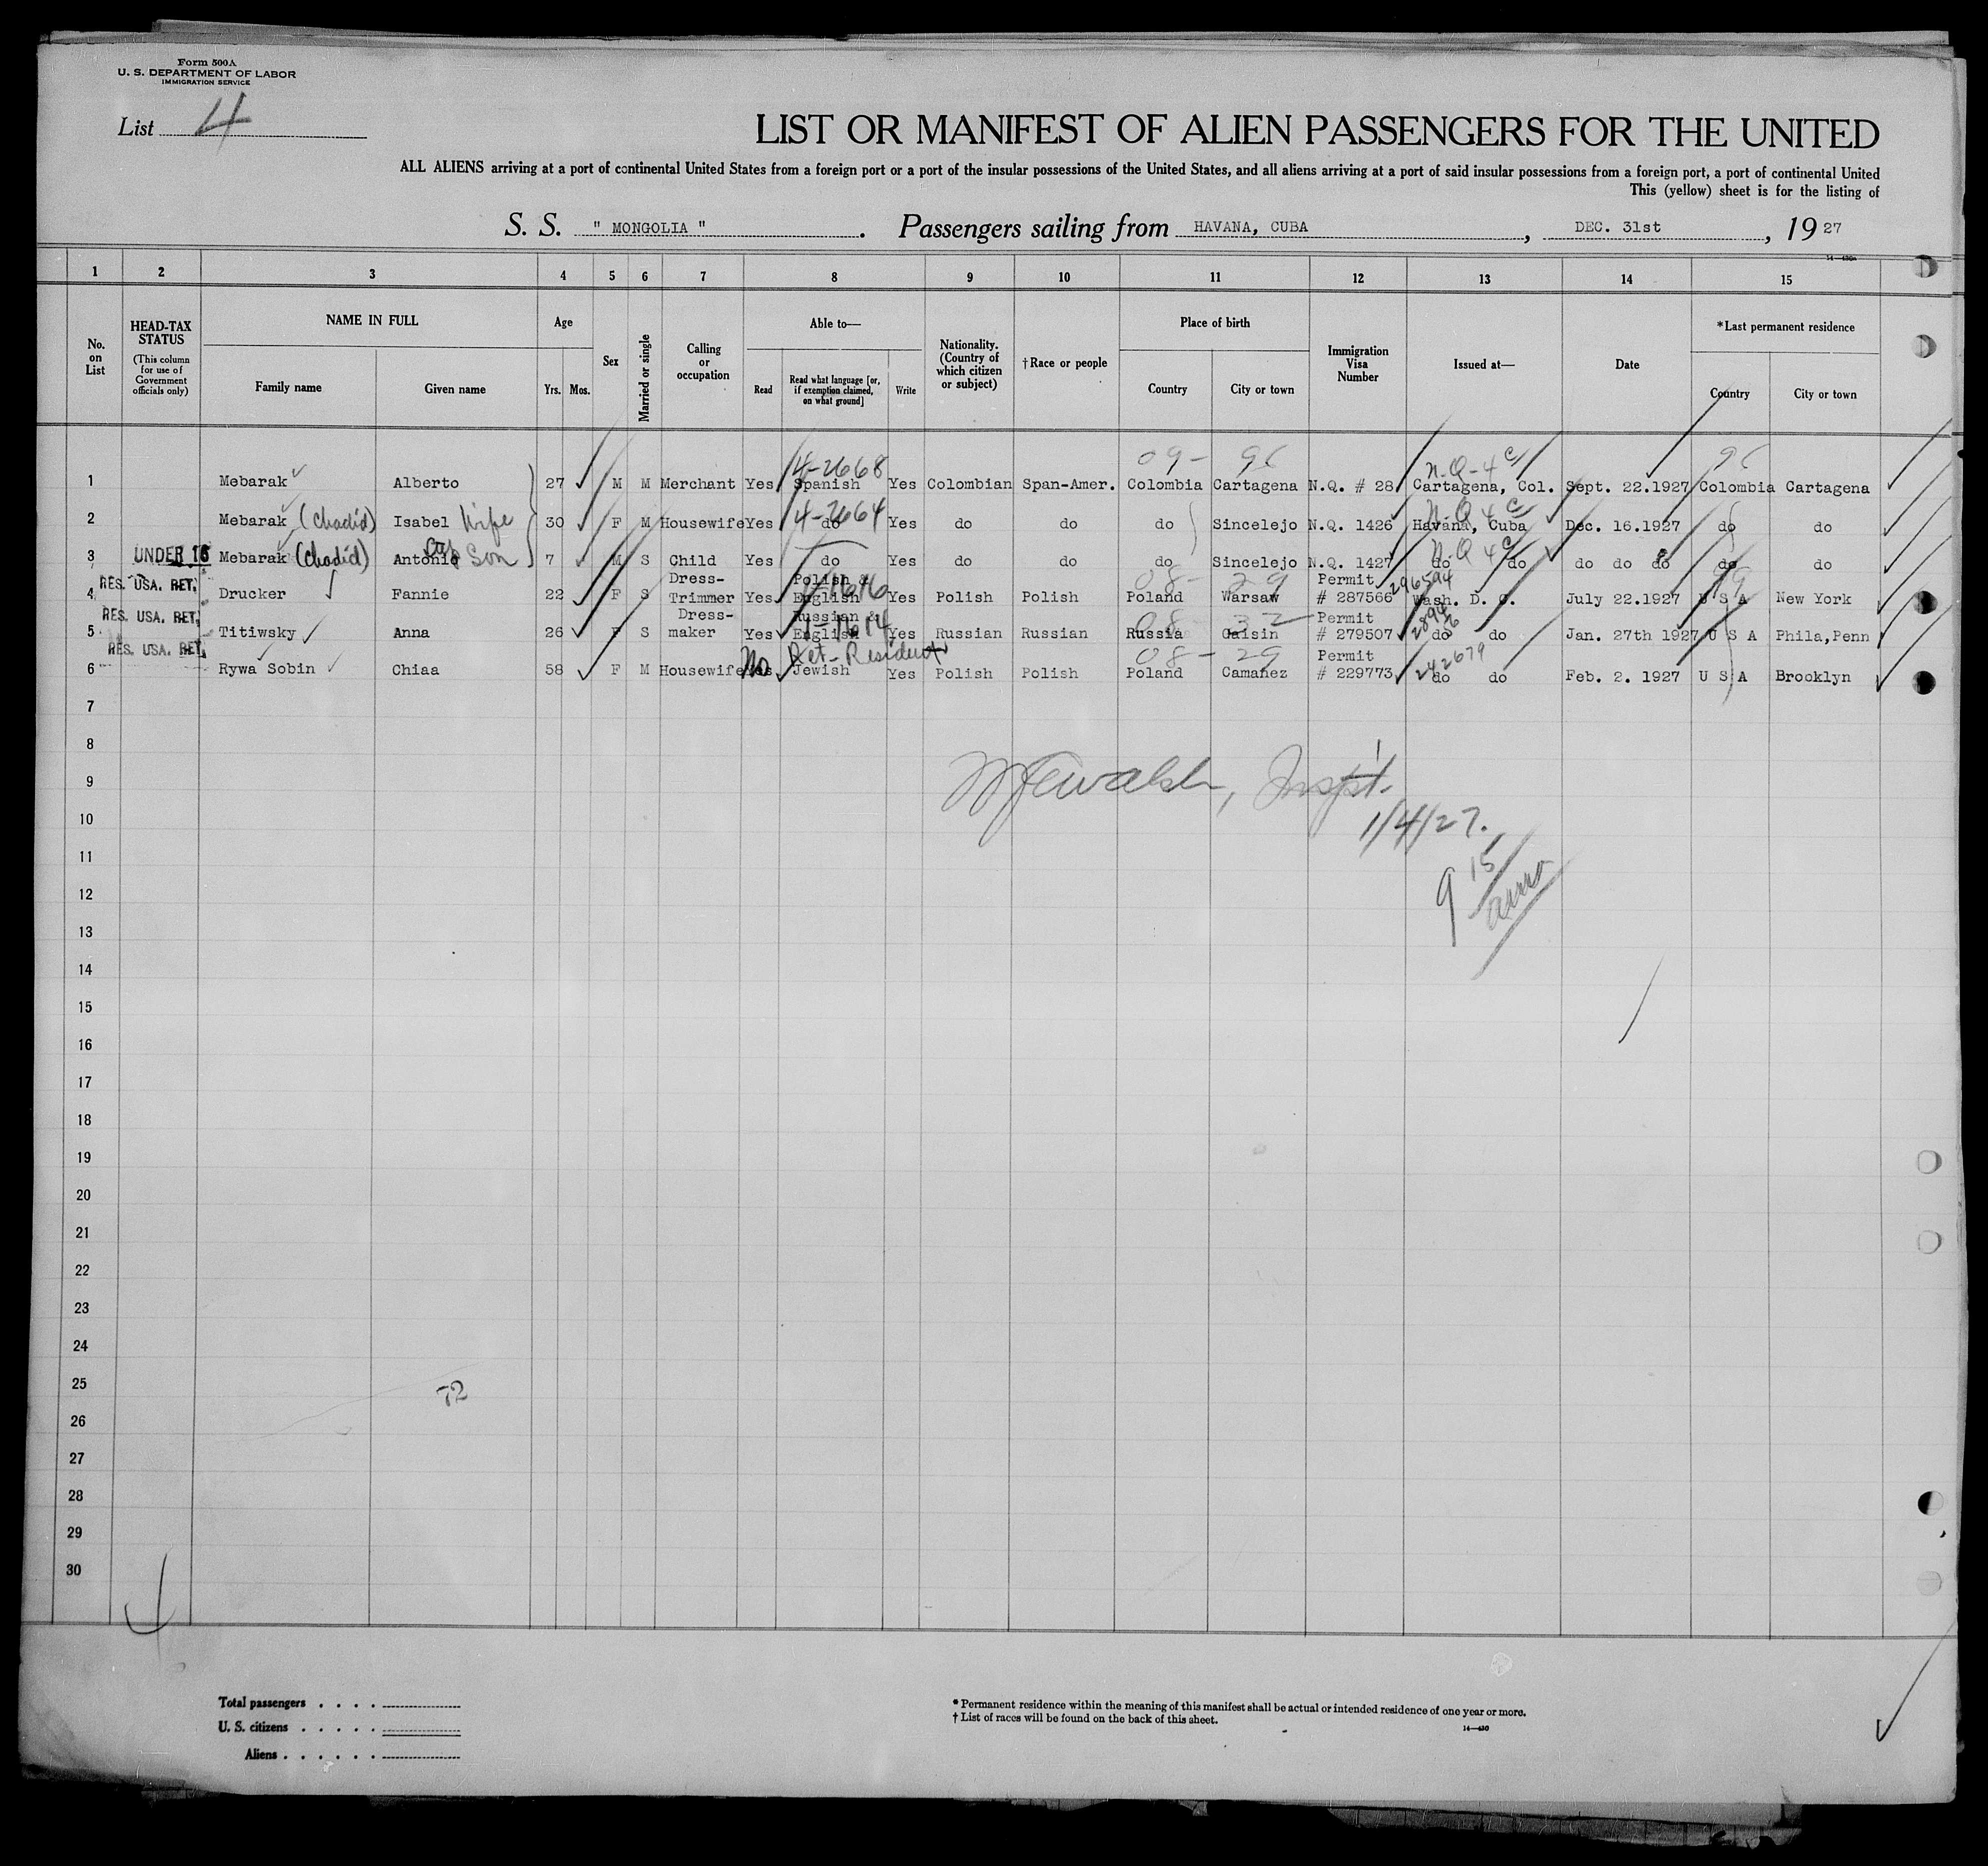 Form 500A
U. S. DEPARTMENT OF LABOR
IMMIGRATION SERVICE
List 4
LIST OR MANIFEST OF ALIEN PASSENGERS FOR THE UNITED
ALL ALIENS arriving at a port of continental United States from a foreign port or a port of the insular possessions of the United States, and all aliens arriving at a port of said insular possessions from a foreign port, a port of continental United
This (yellow) sheet is for the listing of
S. S. " MONGOLIA " . Passengers sailing from HAVANA, CUBA , DEC. 31st , 19 27
1 2 3 4 5 6 7 8 9 10 11 12 13 14 15
No. on List
HEAD-TAX STATUS
(This column for use of Government officials only)
NAME IN FULL
Family name Given name
Age
Yrs. Mos.
Sex
Married or single
Calling or occupation
Able to—
Read Read what language [or, if exemption claimed, on what ground] Write
Nationality. (Country of which citizen or subject)
†Race or people
Place of birth
Country City or town
Immigration Visa Number
Issued at—
Date
*Last permanent residence
Country City or town
4-2668 09- 96 N-Q-4 c 96
1 Mebarak Alberto 27 M M Merchant Yes Spanish Yes Colombian Span-Amer. Colombia Cartagena N.Q. # 28 Cartagena, Col. Sept. 22.1927 Colombia Cartagena
4-2664 N-Q 4 c
2 Mebarak (Chadid) Isabel Wife 30 F M Housewife Yes do Yes do do do Sincelejo N.Q. 1426 Havana, Cuba Dec. 16.1927 do do
N-Q 4 c
3 UNDER 16 Mebarak (Chadid) Antonio Son 7 M S Child Yes do Yes do do do Sincelejo N.Q. 1427 do do do do do do do
RES. USA. RET. Dress- Polish & 08- 29 Permit 296594 99
4 Drucker Fannie 22 F S Trimmer Yes English Yes Polish Polish Poland Warsaw # 287566 Wash. D. C. July 22.1927 U S A New York
RES. USA. RET. Dress- Russian & 08 32 Permit
5 Titiwsky Anna 26 F S maker Yes English Yes Russian Russian Russia Gaisin # 279507 do do Jan. 27th 1927 U S A Phila,Penn
RES. USA. RET. No Ret-Resident 08- 29 Permit 242679
6 Rywa Sobin Chiaa 58 F M Housewife Yes Jewish Yes Polish Polish Poland Camanez # 229773 do do Feb. 2. 1927 U S A Brooklyn
7
8
9 Walsh, Inspt.
10 1/4/27.
11 9 15
12 am
13
14
15
16
17
18
19
20
21
22
23
24
25 72
26
27
28
29
30
Total passengers . . . .
U. S. citizens . . . . .
Aliens . . . . . .
* Permanent residence within the meaning of this manifest shall be actual or intended residence of one year or more.
† List of races will be found on the back of this sheet.
14—430